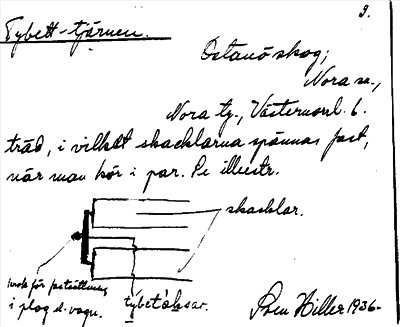 9.
Tybett-tjärnen.
Ostanö skog,
Nora sn.,
Nora tg., Västernorrl. l.
träd, i vilket skacklarna spännas fast,
när man kör i par. Se illustr.
skacklar.
krok för fastsättning
i plog el. vagn.
tybetoksar.
Hiller 1936.